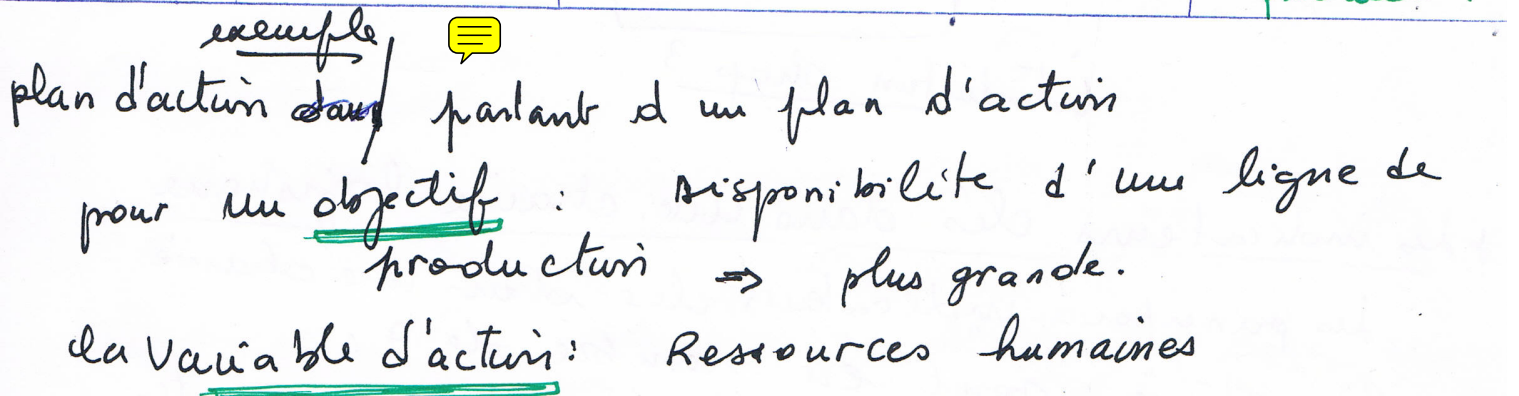 exemple
plan d'action / parlant d'un plan d'action
pour un objectif : Disponibilité d'une ligne de
production ⇒ plus grande.
La variable d'action : Ressources humaines